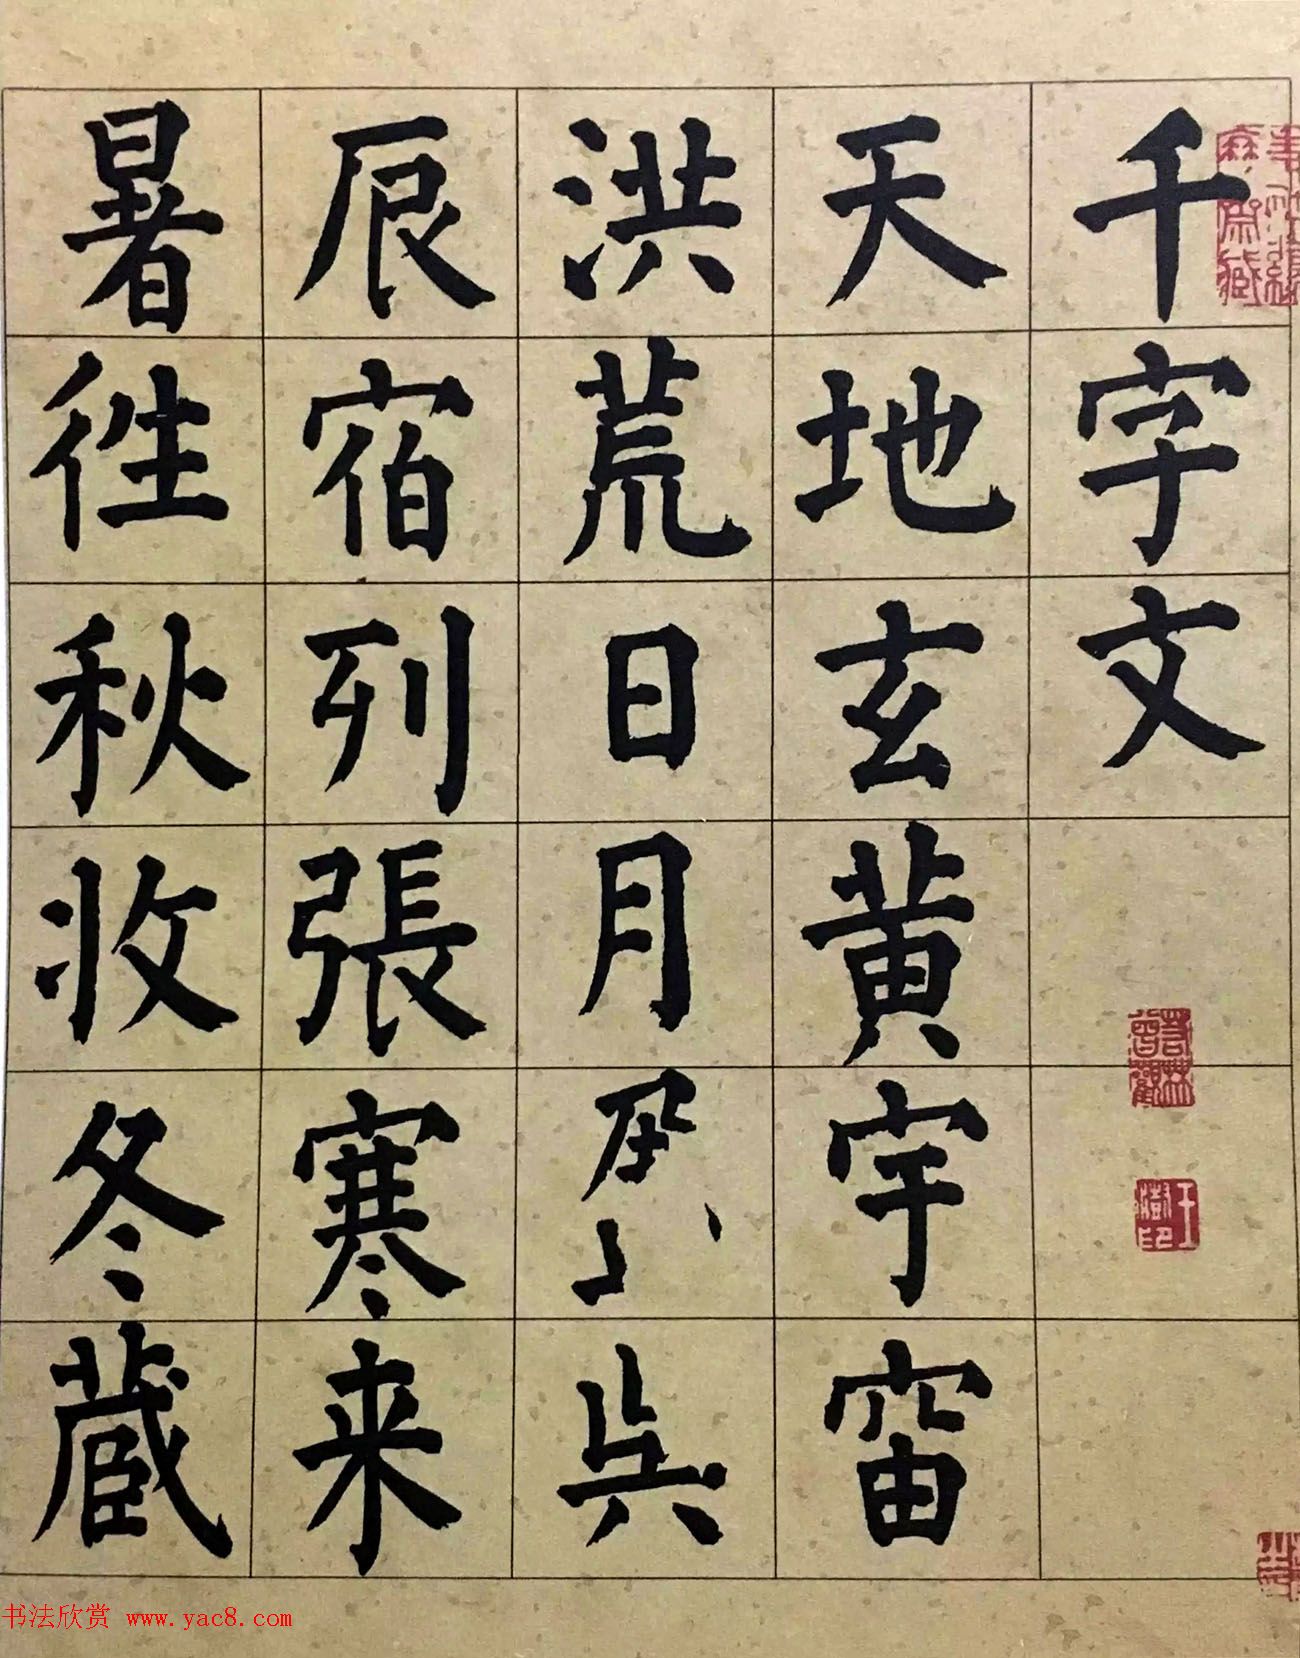 千字文
天地玄黄宇宙
洪荒日月
辰宿列張寒来
暑徃秋收冬蔵
王澍印
书法欣赏 www.yac8.com